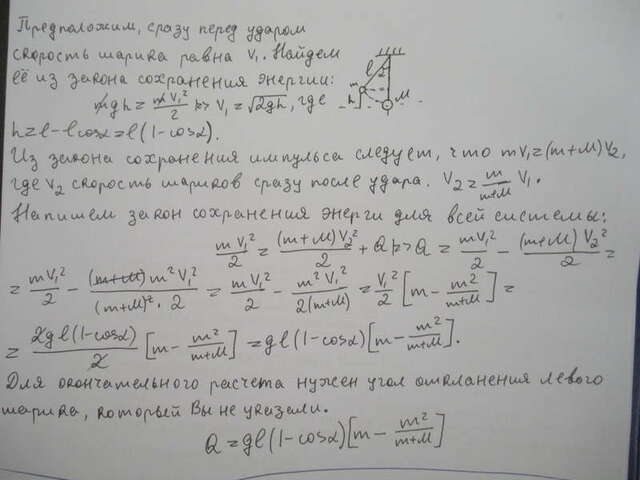 Предположим, сразу перед ударом
скорость шарика равна V₁. Найдем
её из закона сохранения энергии:
mgh = mV₁²/2 |=> V₁ = √2gh, где
h = l - l cosα = l(1 - cosα).
l α m h M
Из закона сохранения импульса следует, что mV₁ = (m+M)V₂,
где V₂ скорость шариков сразу после удара. V₂ = m/(m+M) V₁.
Напишем закон сохранения энерги для всей системы:
mV₁²/2 = (m+M)V₂²/2 + Q |=> Q = mV₁²/2 - (m+M)V₂²/2 =
= mV₁²/2 - (m+M)m²V₁²/((m+M)²·2) = mV₁²/2 - m²V₁²/(2(m+M)) = V₁²/2 [m - m²/(m+M)] =
= 2gl(1-cosα)/2 [m - m²/(m+M)] = gl(1-cosα)[m - m²/(m+M)].
Для окончательного расчета нужен угол отклонения левого
шарика, который Вы не указали.
Q = gl(1-cosα)[m - m²/(m+M)]